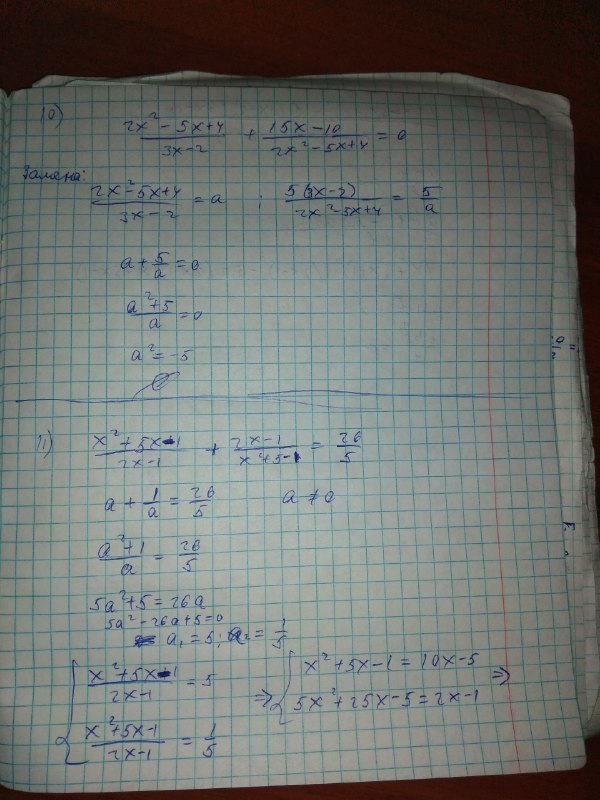 10)
(2x² - 5x + 4)/(3x - 2) + (15x - 10)/(2x² - 5x + 4) = 0
Замена:
(2x² - 5x + 4)/(3x - 2) = a ; 5(3x - 2)/(2x² - 5x + 4) = 5/a
a + 5/a = 0
(a² + 5)/a = 0
a² = -5
∅
11)
(x² + 5x - 1)/(2x - 1) + (2x - 1)/(x² + 5 - 1) = 26/5
a + 1/a = 26/5 a ≠ 0
(a² + 1)/a = 26/5
5a² + 5 = 26a
5a² - 26a + 5 = 0
a₁ = 5; a₂ = 1/5
{ (x² + 5x - 1)/(2x - 1) = 5 ⇒ { x² + 5x - 1 = 10x - 5 ⇒
(x² + 5x - 1)/(2x - 1) = 1/5 5x² + 25x - 5 = 2x - 1